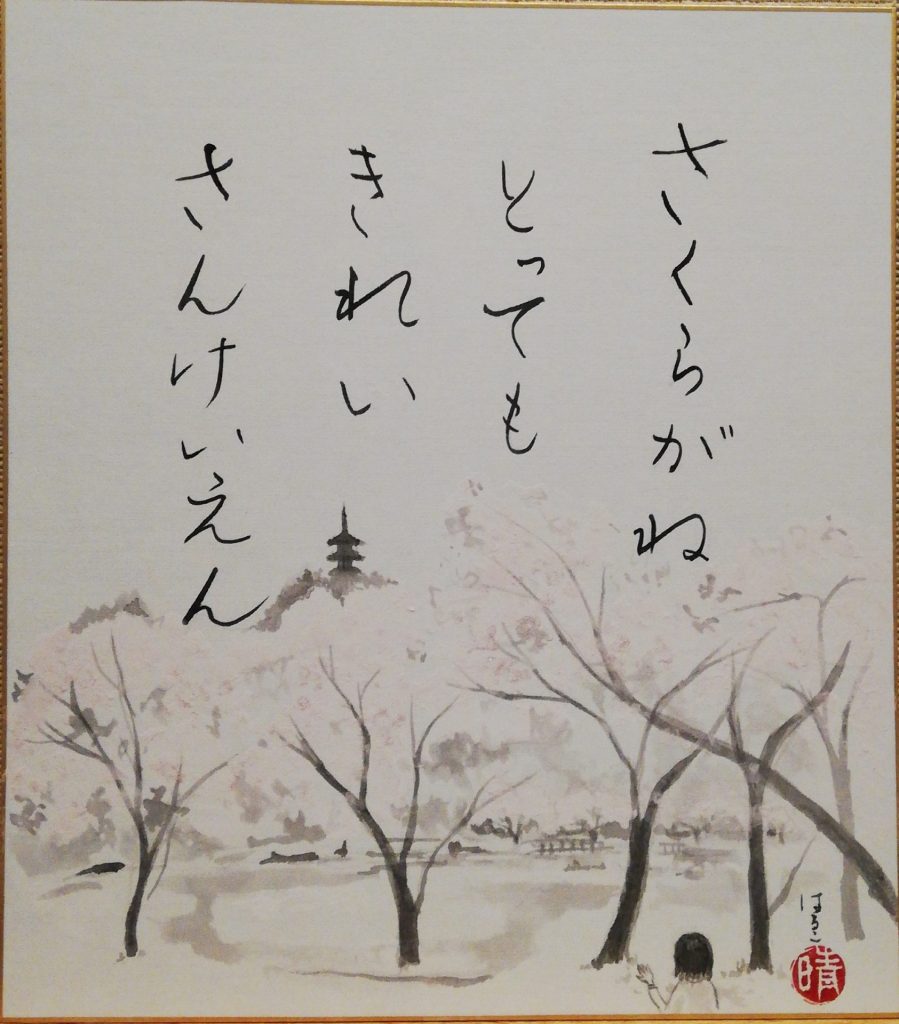 さくらがね
とっても
きれい
さんけいえん
はるこ
晴